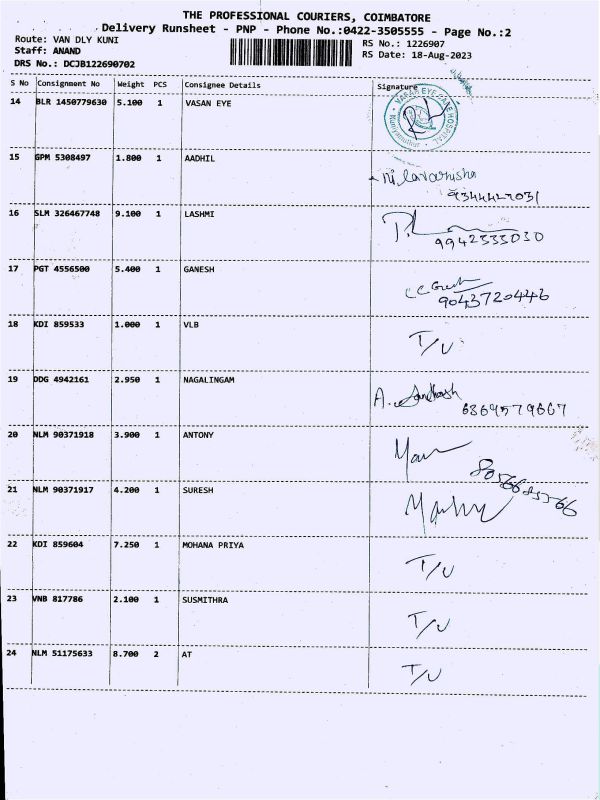 THE PROFESSIONAL COURIERS, COIMBATORE
Delivery Runsheet - PNP - Phone No.:0422-3505555 - Page No.:2
Route: VAN DLY KUNI
RS No.: 1226907
Staff: ANAND
RS Date: 18-Aug-2023
DRS No.: DCJB122690702
S No Consignment No Weight PCS Consignee Details Signature
14 BLR 1450779630 5.100 1 VASAN EYE
VASAN EYE CARE HOSPITAL
15 GPM 5308497 1.800 1 AADHIL
9344427031
16 SLM 326467748 9.100 1 LASHMI
9942535030
17 PGT 4556500 5.400 1 GANESH
9043720446
18 KDI 859533 1.000 1 VLB
T/U
19 DDG 4942161 2.950 1 NAGALINGAM
A. Santhosh 6369579667
20 NLM 90371918 3.900 1 ANTONY
21 NLM 90371917 4.200 1 SURESH
22 KDI 859604 7.250 1 MOHANA PRIYA
T/U
23 VNB 817786 2.100 1 SUSMITHRA
T/U
24 NLM 51175633 8.700 2 AT
T/U